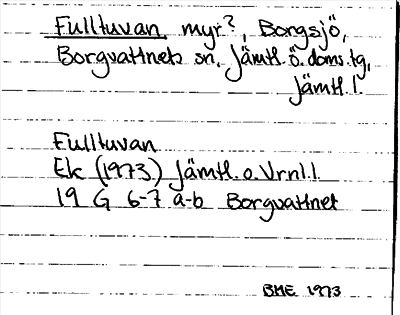 Fulltuvan myr?, Borgsjö,
Borgvattnets sn, Jämtl. ö. doms.tg,
Jämtl. l.
Fulltuvan
Ek (1973) Jämtl. o. Vrnl. l.
19 G 6-7 a-b Borgvattnet
BME 1973